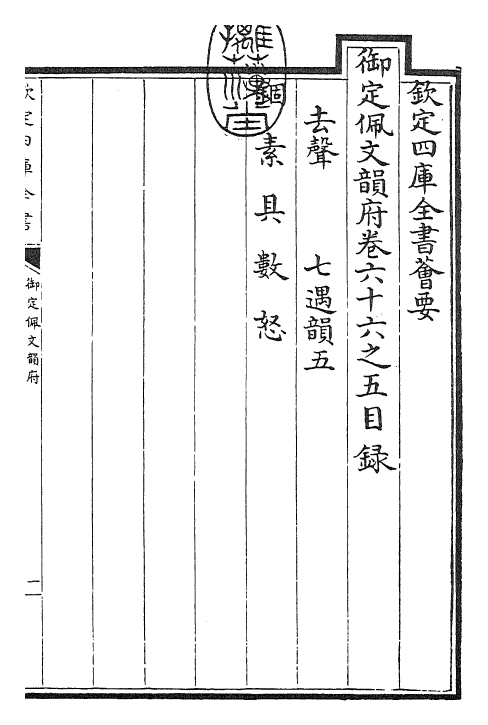 欽定四庫全書薈要
御定佩文韻府卷六十六之五目録
去聲　七遇韻五
素具數怒
欽定四庫全書
御定佩文韻府
一